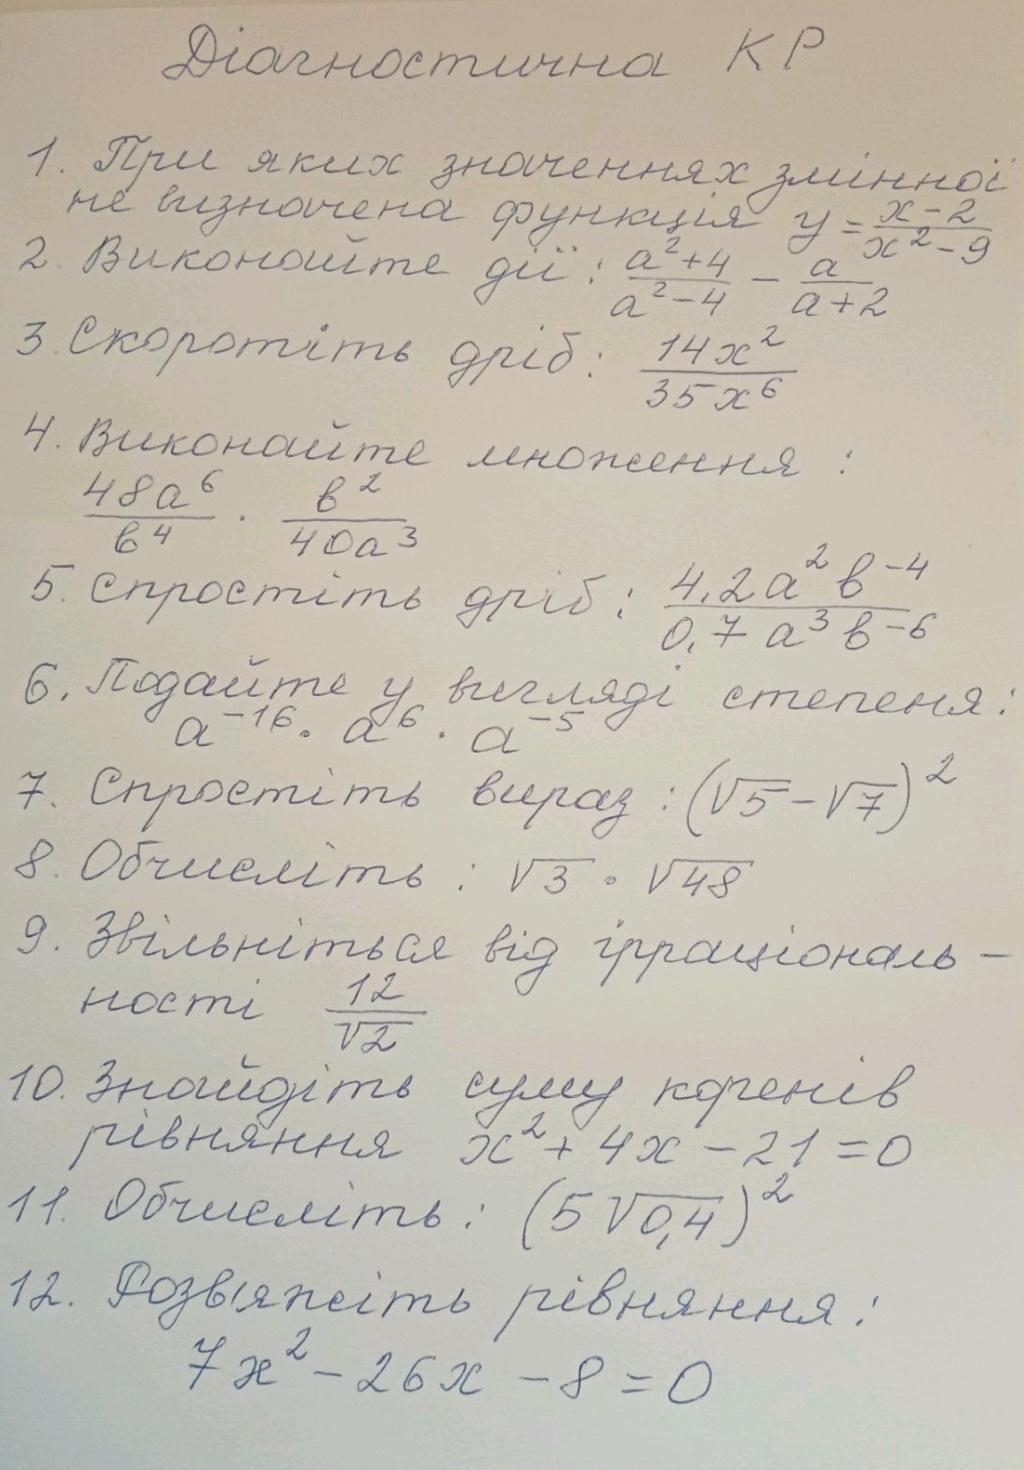 Діагностична КР
1. При яких значеннях змінної
не визначена функція y = (x-2)/(x²-9)
2. Виконайте дії: (a²+4)/(a²-4) - a/(a+2)
3. Скоротіть дріб: 14x²/35x⁶
4. Виконайте множення:
48a⁶/b⁴ · b²/40a³
5. Спростіть дріб: 4,2a²b⁻⁴/0,7a³b⁻⁶
6. Подайте у вигляді степеня:
a⁻¹⁶ · a⁶ · a⁻⁵
7. Спростіть вираз: (√5-√7)²
8. Обчисліть: √3 · √48
9. Звільніться від ірраціональ-
ності 12/√2
10. Знайдіть суму коренів
рівняння x²+4x-21=0
11. Обчисліть: (5√0,4)²
12. Розв'яжіть рівняння:
7x²-26x-8=0